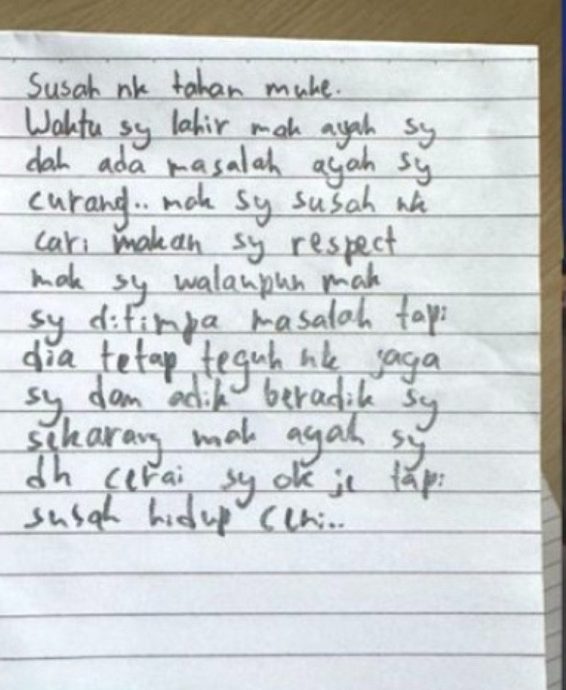 Susah nk tahan muke.
Waktu sy lahir mak ayah sy
dah ada masalah ayah sy
curang.. mak sy susah nk
cari makan sy respect
mak sy walaupun mak
sy ditimpa masalah tapi
dia tetap teguh nk jaga
sy dan adik beradik sy
sekarang mak ayah sy
dh cerai sy ok je tapi
susah hidup cmni..